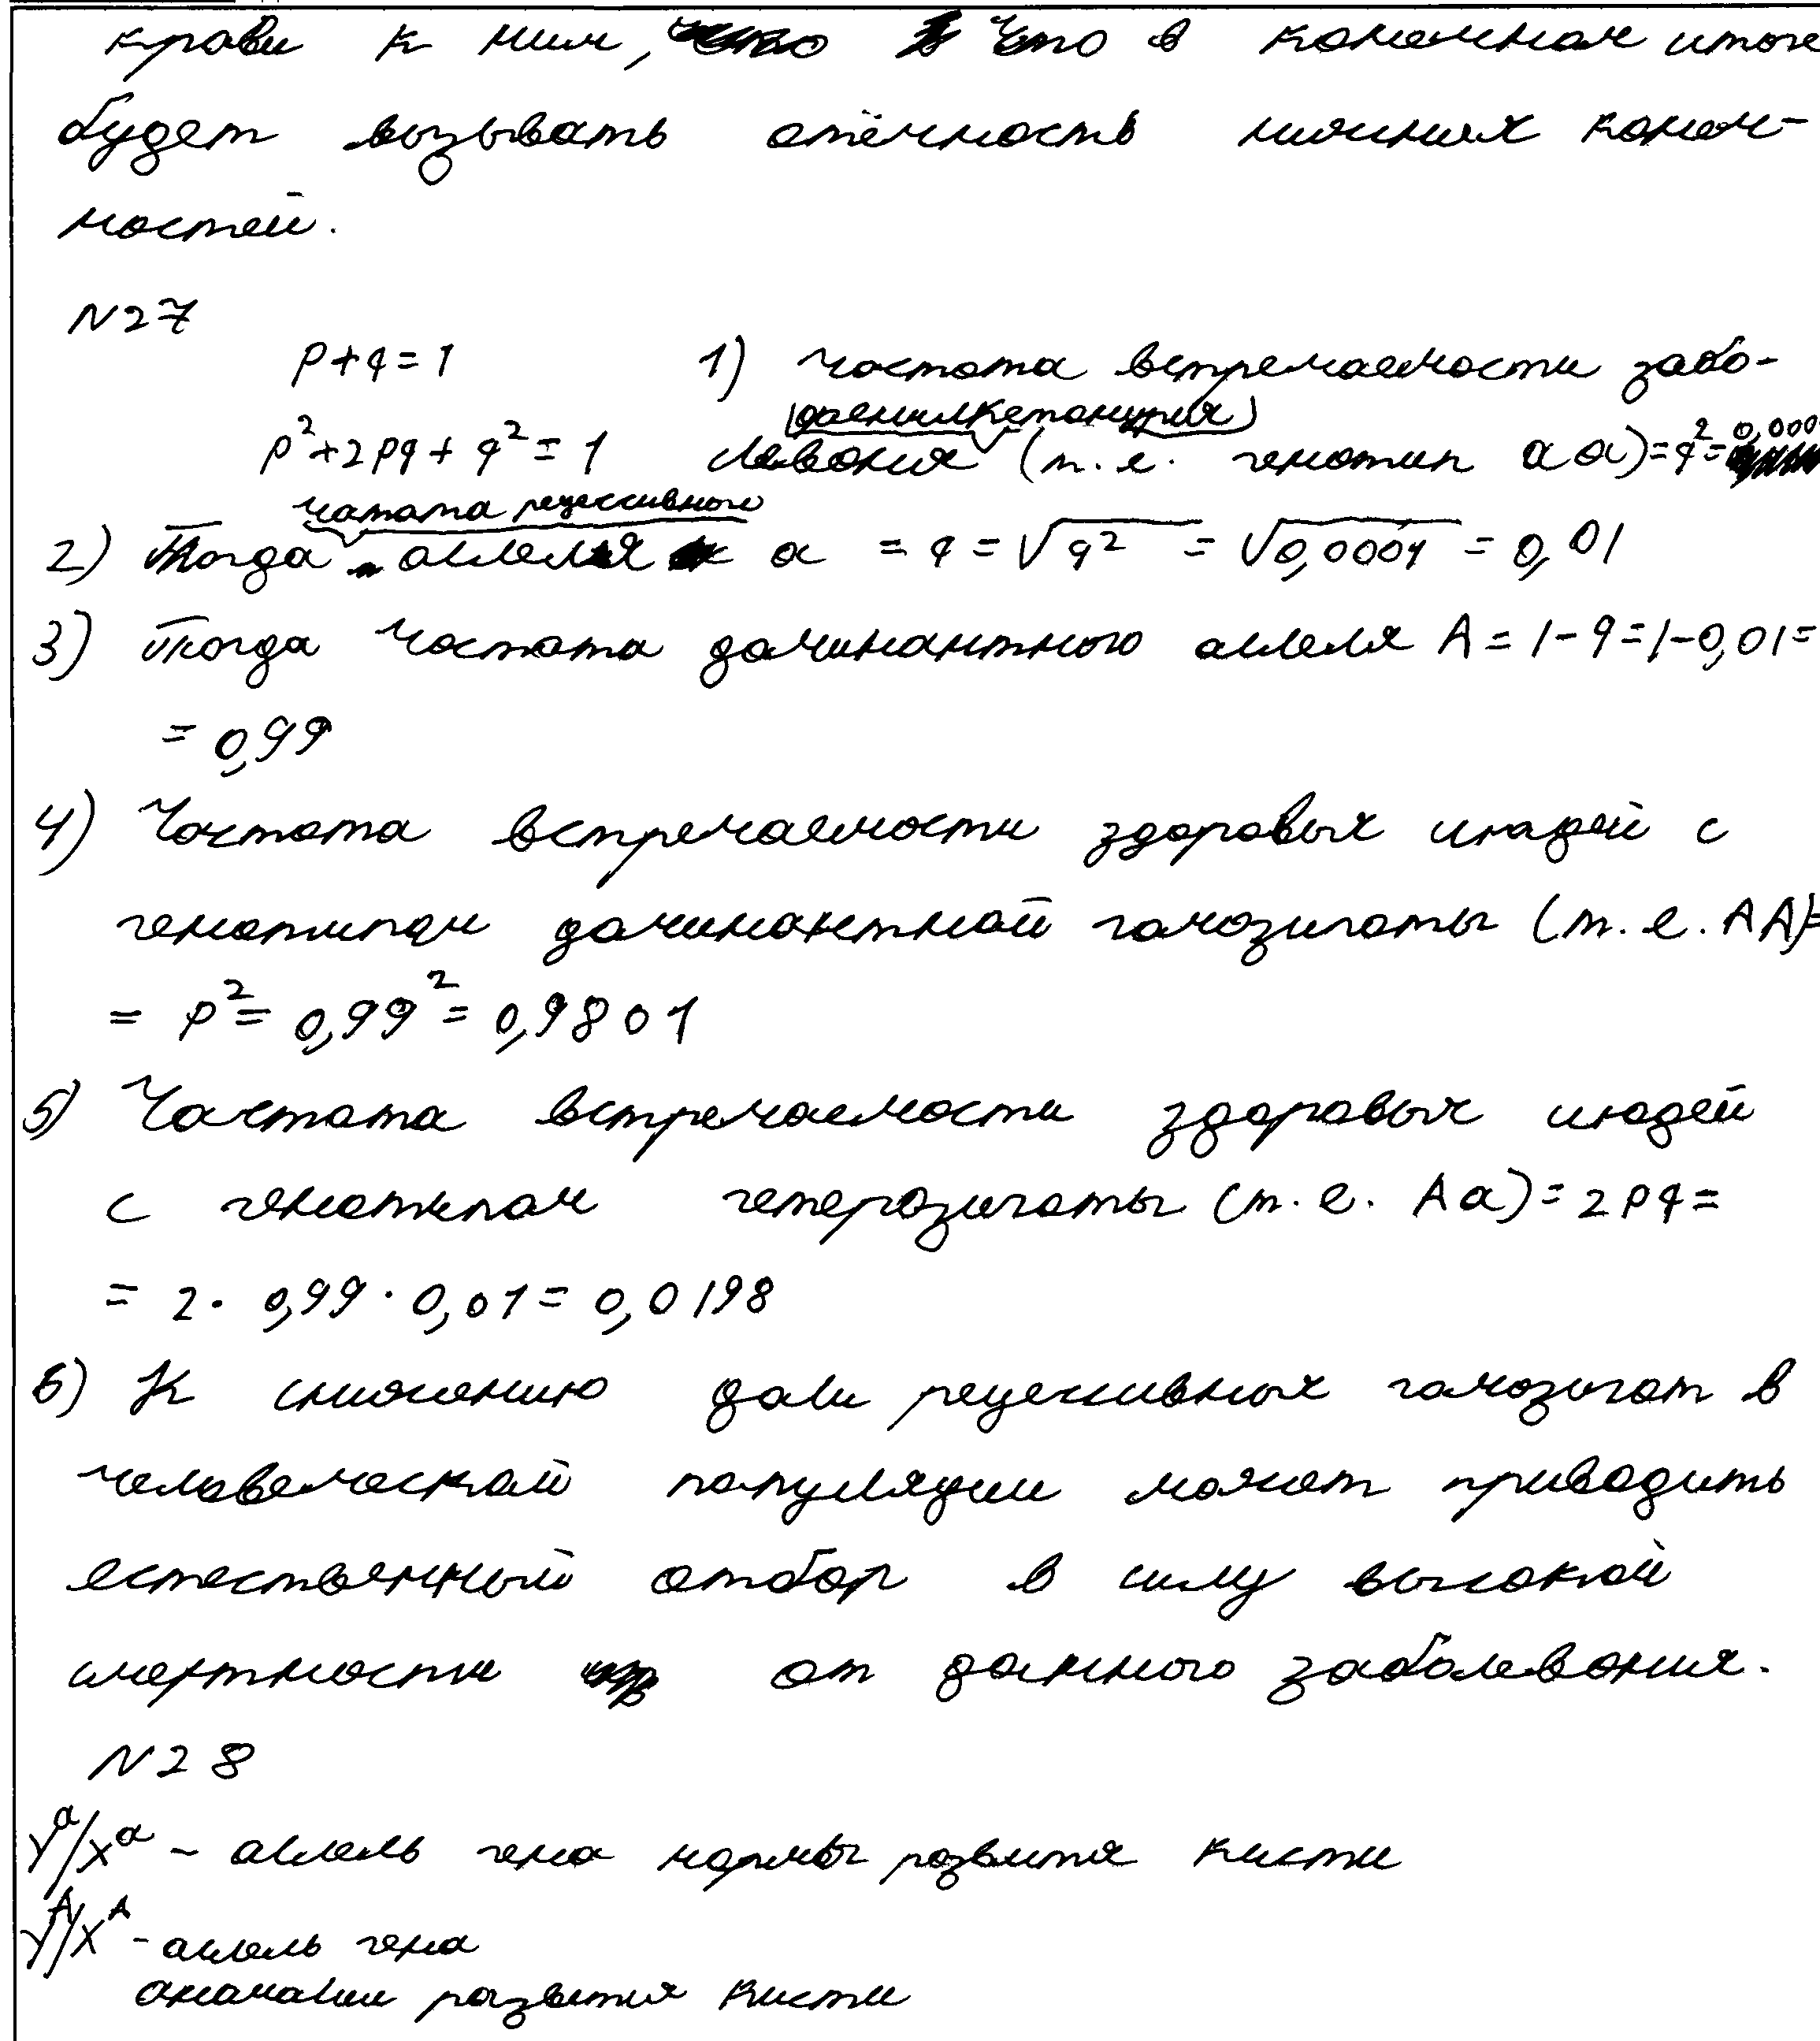 крови к ним, что в конечном итоге
будет вызывать отёчность нижних конеч-
ностей.
N27
p+q=1 1) частота встречаемости забо-
(фенилкетонурия)
p²+2pq+q²=1 левания (т.е. генотип аа)=q²=0,000
частота рецессивного
2) Тогда аллеля а = q = √q² = √0,0001 = 0,01
3) Тогда частота доминантного аллеля A = 1-q=1-0,01=
= 0,99
4) Частота встречаемости здоровых людей с
генотипом доминантной гомозиготы (т.е. AA)=
= p² = 0,99² = 0,9801
5) Частота встречаемости здоровых людей
с генотипом гетерозиготы (т.е. Aa)=2pq=
= 2·0,99·0,01=0,0198
6) К снижению доли рецессивных гомозигот в
человеческой популяции может приводить
естественный отбор в силу высокой
смертности от данного заболевания.
N28
Yᵃ/Xᵃ - аллель гена нормы развития кисти
Yᴬ/Xᴬ - аллель гена
аномалии развития кисти